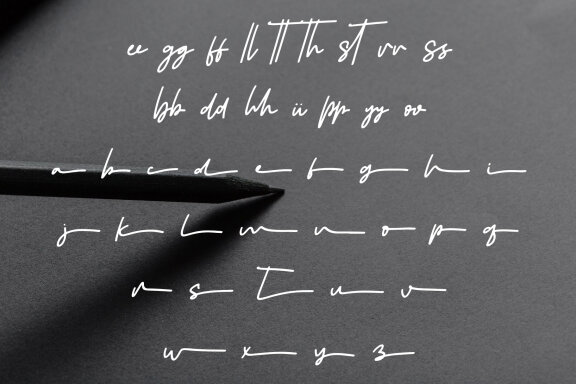 ee gg ff ll tt th st rr ss
bb dd hh ii pp yy ov
a b c d e f g h i
j k l m n o p q
r s t u v
w x y z